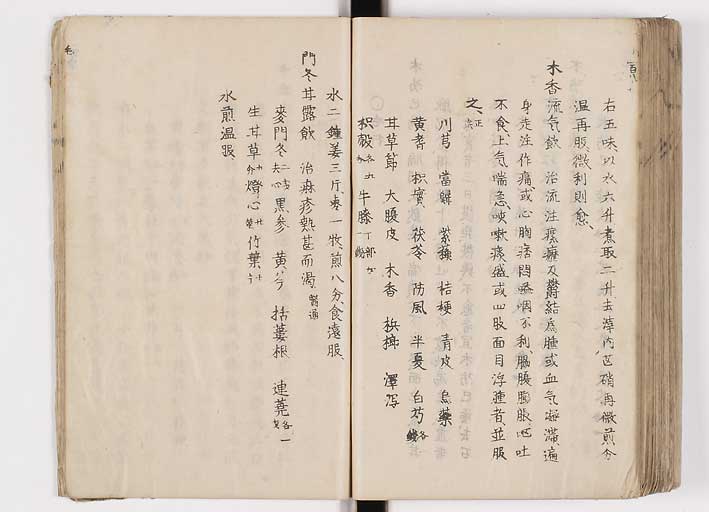 右五味以水六升煮取二升去滓内芒硝再微煎分
温再服微利則愈
木香流氣飲 治流注瘰癧及鬱結爲腫或血氣凝滯遍
身走注作痛或心胸痞悶咽不利膓腹膨脹嘔吐
不食上气喘急咳嗽痰盛或四肢面目浮腫者並服
之 正
川芎 當歸 紫蘇 桔梗 青皮 烏藥
黄耆 枳實 茯苓 防風 半夏 白芍 各
甘草節 大腹皮 木香 梹榔 澤瀉
枳殼 各 牛膝
水二鐘姜三片枣一枚煎八分食遠服
門冬甘露飲 治麻疹熱甚而渇 醫通
麥門冬 去心 黒参 黄芩 括蔞根 連蕘 各一
生甘草 燈心 竹葉
水煎温服